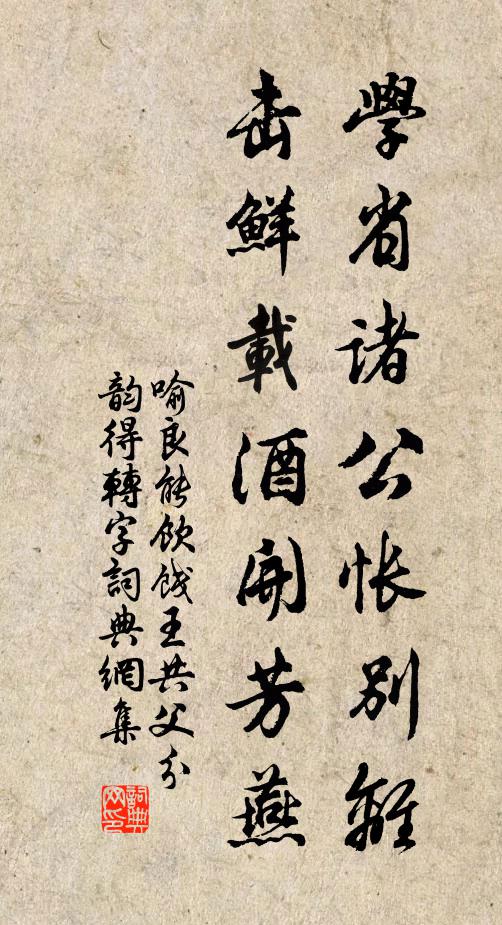 學省諸公悵別離
击鮮載酒開芳燕
喻良能飲餞王共父分
韵得轉字詞典網集
詞典
网印